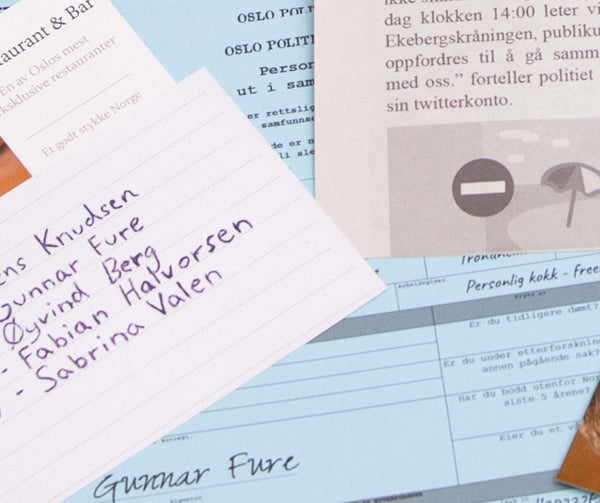 staurant & Bar
En av Oslos mest
eksklusive restauranter
Et godt stykke Norge
OSLO
OSLO POLITI
Person
ut i sam
er rettslig
samfunns
dag klokken 14:00 leter vi
Ekebergskråningen, publiku
oppfordres til å gå samm
med oss.” forteller politiet
sin twitterkonto.
ens Knudsen
Gunnar Fure
Øyvind Berg
- Fabian Halvorsen
- Sabrina Valen
Arbeidsgiver
Personlig kokk - free
Er du tidligere dømt?
Er du under etterforskning
annen pågående sak?
Har du bodd utenfor Nor
siste 5 årene?
Eier du et
Gunnar Fure